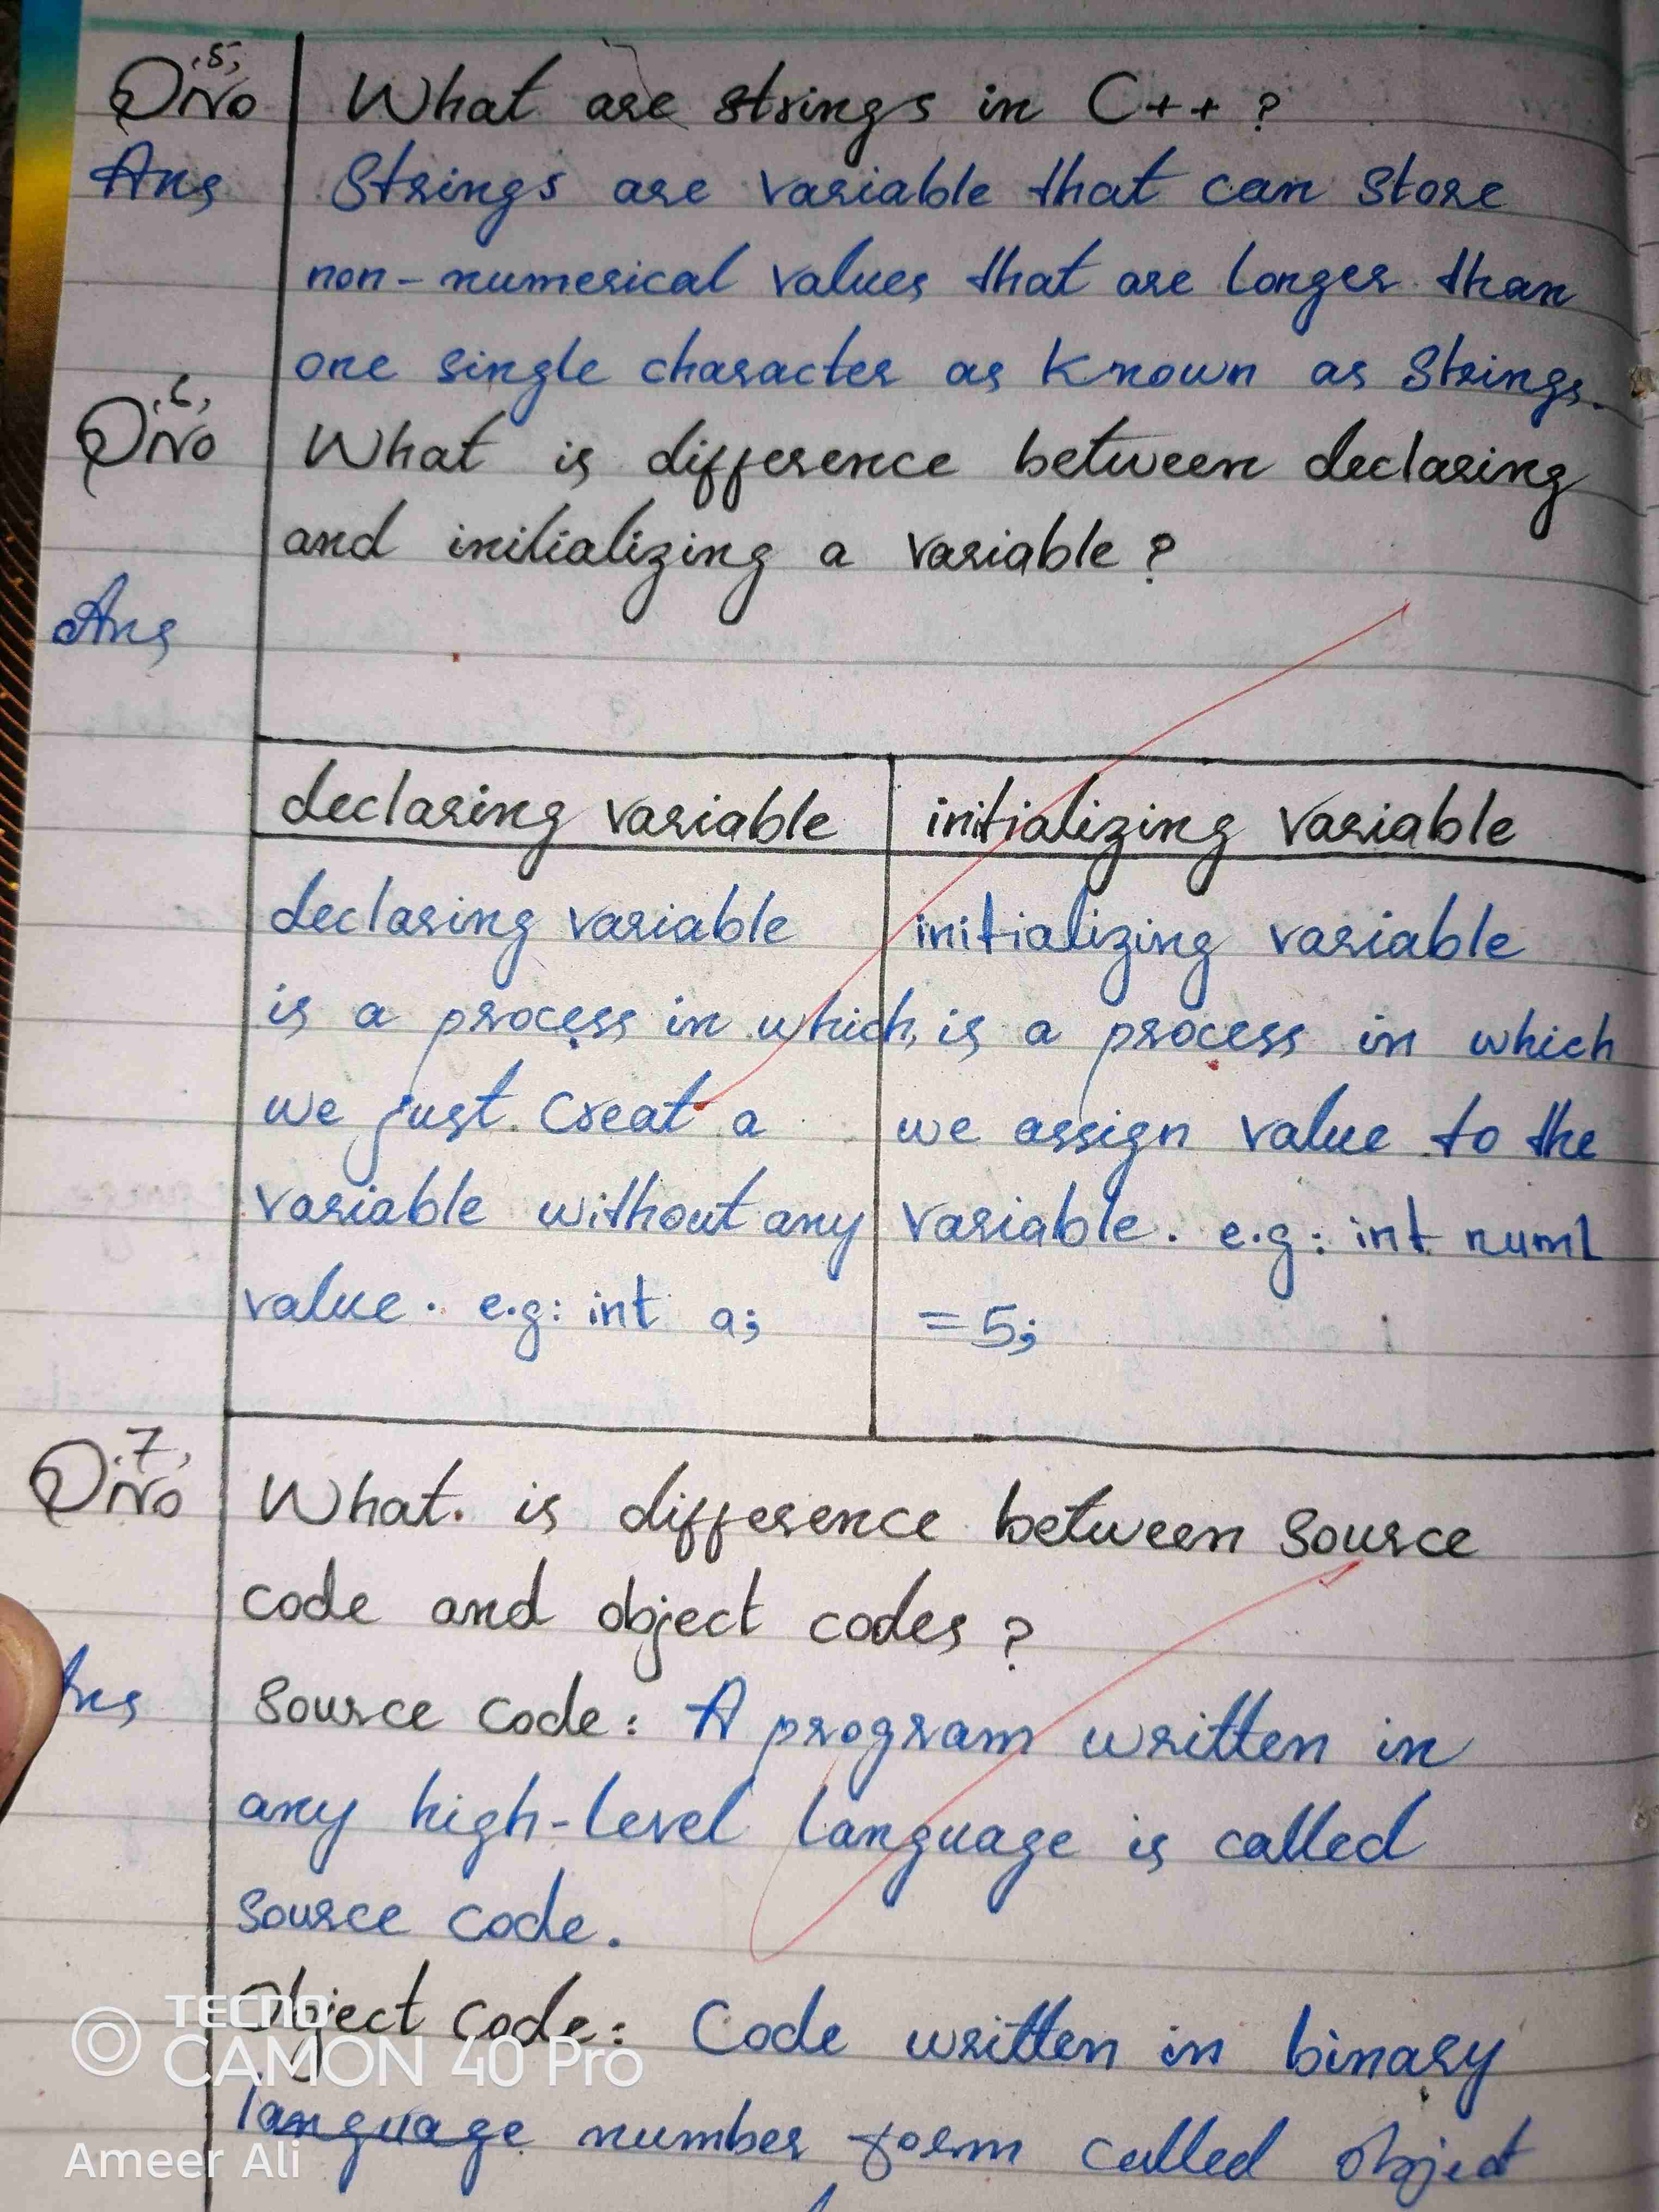 Q No .5,
What are strings in C++ ?
Ans
Strings are variable that can store
non-numerical values that are longer than
one single character as known as Strings.
Q No .6,
What is difference between declaring
and initializing a variable?
Ans
declaring variable
initializing variable
declaring variable
is a process in which
we just creat a
variable without any
value. e.g: int a;
initializing variable
is a process in which
we assign value to the
variable. e.g: int num1
= 5;
Q No .7,
What is difference between source
code and object codes ?
Ans
Source code: A program written in
any high-level language is called
source code.
Object code: Code written in binary
language number form called object
TECNO
CAMON 40 Pro
Ameer Ali